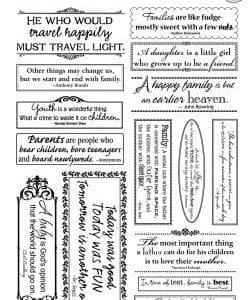 HE WHO WOULD
travel happily
MUST TRAVEL LIGHT.
Other things may change us,
but we start and end with family.
~Anthony Brandt
Youth is a wonderful thing.
What a crime to waste it on children.
Parents are people who
bear children, bore teenagers
and board newlyweds.
~Anonymous
A baby is God's opinion
that the world should go on.
Today was FUN
Tomorrow is another
Families are like fudge-
mostly sweet with a few nuts.
A daughter is a little girl
who grows up to be a friend.
A happy family is but
an earlier heaven.
~John Bowring
Family: A social unit where the father
is concerned with parking space,
the children with outer space, and
the mother with closet space.
The most important thing
a father can do for his children
is to love their mother.
In time of test, family is best.